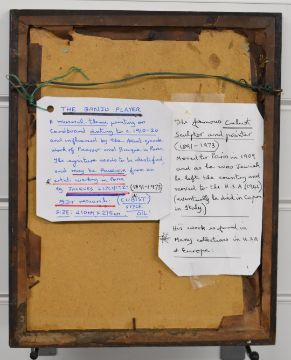 THE BANJO PLAYER
A musical theme painting on
Cardboard dating to c. 1910-20
and influenced by the
work of Picasso and Braque in Paris.
The signature needs to be identified,
and may be Russian from an
artist working in Paris
by JACQUES LIPCHITZ (1891-1973)
(CUBIST
STYLE
OIL
The famous Cubist
Sculptor and painter
(1891-1973)
Moved to Paris in 1909
and as he was Jewish
he left the country and
moved to the U.S.A (1941)
(eventually he died in Capri
in Italy)
His work is found in
Many collections in U.S.A
& Europe.